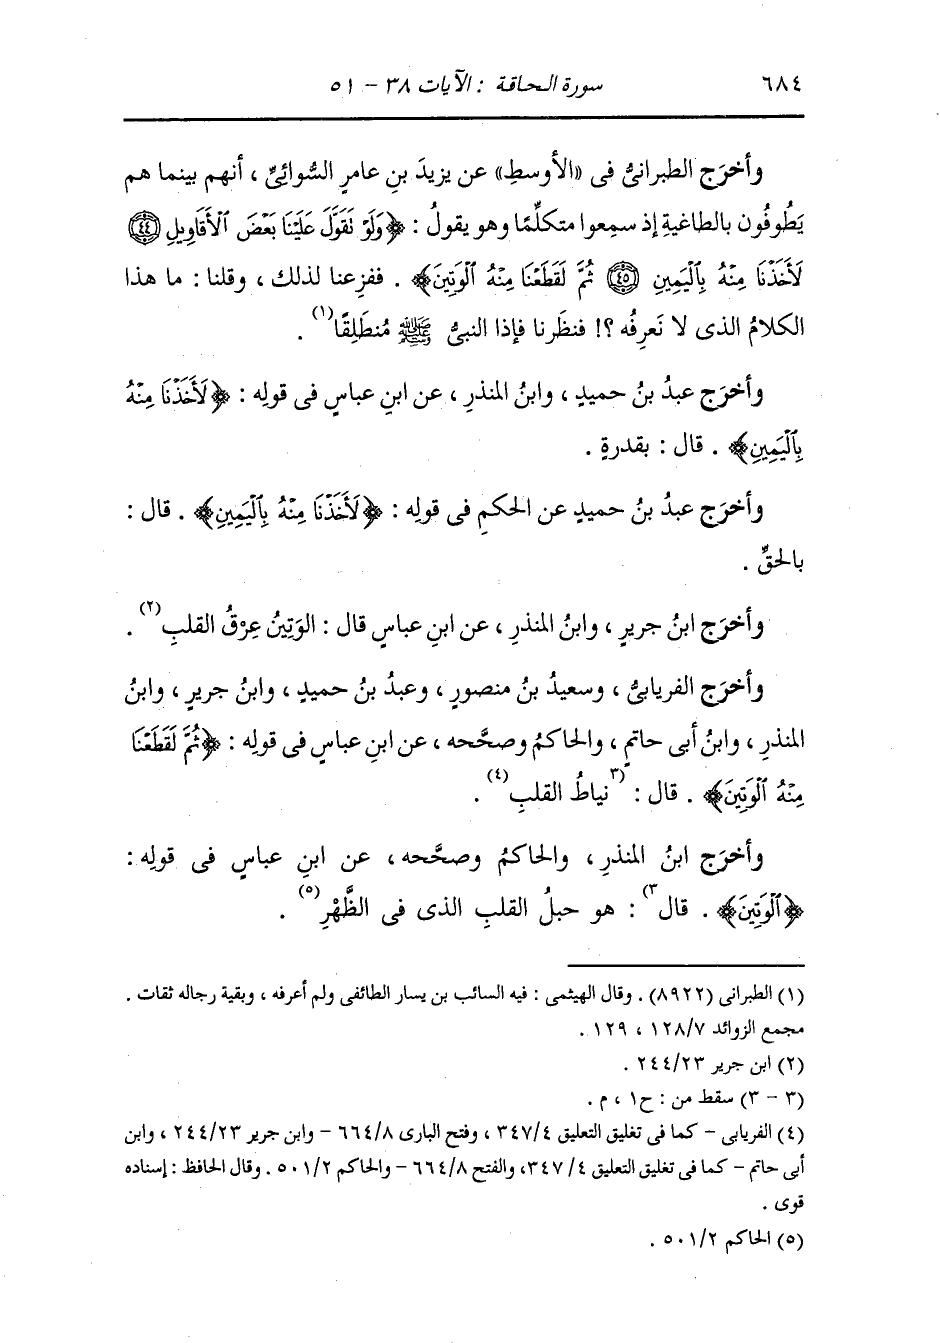 ٦٨٤ سورة الحاقة : الآيات ٣٨ - ٥١
وأخرَج الطبرانىُّ فى «الأوسطِ» عن يزيدَ بنِ عامرٍ السُّوائِىِّ ، أنهم بينما هم
يَطُوفُون بالطاغيةِ إذ سمِعوا متكلِّمًا وهو يقولُ : ﴿وَلَوْ تَقَوَّلَ عَلَيْنَا بَعْضَ ٱلْأَقَاوِيلِ ﴿٤٤﴾
لَأَخَذْنَا مِنْهُ بِٱلْيَمِينِ ﴿٤٥﴾ ثُمَّ لَقَطَعْنَا مِنْهُ ٱلْوَتِينَ﴾ . ففزِعنا لذلك ، وقلنا : ما هذا
الكلامُ الذى لا نَعرِفُه ؟! فنظَرنا فإذا النبىُّ ﷺ مُنطَلِقًا(١) .
وأخرَج عبدُ بنُ حميدٍ ، وابنُ المنذرِ ، عن ابنِ عباسٍ فى قولِه : ﴿لَأَخَذْنَا مِنْهُ
بِٱلْيَمِينِ﴾ . قال : بقدرةٍ .
وأخرَج عبدُ بنُ حميدٍ عن الحكمِ فى قولِه : ﴿لَأَخَذْنَا مِنْهُ بِٱلْيَمِينِ﴾ . قال :
بالحقِّ .
وأخرَج ابنُ جريرٍ ، وابنُ المنذرِ ، عن ابنِ عباسٍ قال : الوَتِينُ عِرْقُ القلبِ(٢) .
وأخرَج الفريابىُّ ، وسعيدُ بنُ منصورٍ ، وعبدُ بنُ حميدٍ ، وابنُ جريرٍ ، وابنُ
المنذرِ ، وابنُ أبى حاتمٍ ، والحاكمُ وصحَّحه ، عن ابنِ عباسٍ فى قولِه : ﴿ثُمَّ لَقَطَعْنَا
مِنْهُ ٱلْوَتِينَ﴾ . قال : (٣نياطُ القلبِ(٤) .
وأخرَج ابنُ المنذرِ ، والحاكمُ وصحَّحه ، عن ابنِ عباسٍ فى قولِه :
﴿ٱلْوَتِينَ﴾ . قال٣) : هو حبلُ القلبِ الذى فى الظَّهْرِ(٥) .
(١) الطبرانى (٨٩٢٢) . وقال الهيثمى : فيه السائب بن يسار الطائفى ولم أعرفه ، وبقية رجاله ثقات .
مجمع الزوائد ١٢٨/٧ ، ١٢٩ .
(٢) ابن جرير ٢٤٤/٢٣ .
(٣ - ٣) سقط من : ح١ ، م .
(٤) الفريابى - كما فى تغليق التعليق ٣٤٧/٤ ، وفتح البارى ٦٦٤/٨ - وابن جرير ٢٤٤/٢٣ ، وابن
أبى حاتم - كما فى تغليق التعليق ٣٤٧/٤، والفتح ٦٦٤/٨ - والحاكم ٥٠١/٢ . وقال الحافظ : إسناده
قوى .
(٥) الحاكم ٥٠١/٢ .